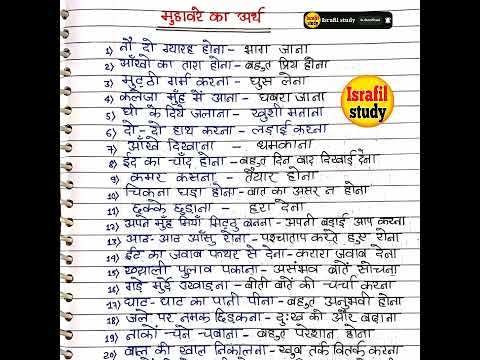 मुहावरे का अर्थ
Israfil study
Israfil study
1) नौ दो ग्यारह होना - भाग जाना
2) आँखो का तारा होना - बहुत प्रिय होना
3) मुट्ठी गर्म करना - घुस लेना
4) कलेजा मुँह में आना - घबरा जाना
5) घी के दिये जलाना - खुशी मनाना
6) दो-दो हाथ करना - लड़ाई करना
7) आँखे दिखाना - धमकाना
8) ईद का चाँद होना - बहुत दिन बाद दिखाई देना
9) कमर कसना - तैयार होना
10) चिकना घड़ा होना - बात का असर न होना
11) छक्के छुड़ाना - हरा देना
12) अपने मुँह मियाँ मिट्ठु बनना - अपनी बड़ाई आप करना
13) आठ-आठ आँसु रोना - पश्चाताप करते हुए रोना
14) ईंट का जवाब पत्थर से देना - करारा जवाब देना
15) ख्याली पुलाव पकाना - असंभव बातें सोचना
16) गड़े मुर्दे उखाड़ना - बीती बातें की चर्चा करना
17) घाट-घाट का पानी पीना - बहुत अनुभवी होना
18) जले पर नमक छिड़कना - दुःख की और बढ़ाना
19) नाकों चने चबाना - बहुत परेशान होना
20) बाल की खाल निकालना - खुब तर्क वितर्क करना